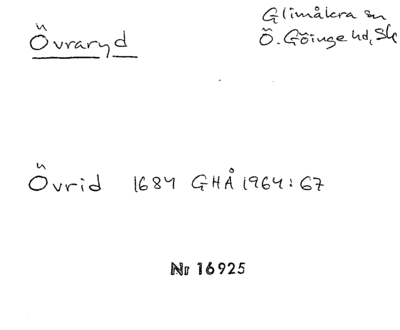 Övraryd
Glimåkra sn
Ö. Göinge hd, Sk
Övrid 1684 GHÅ 1964: 67
Nr 16925